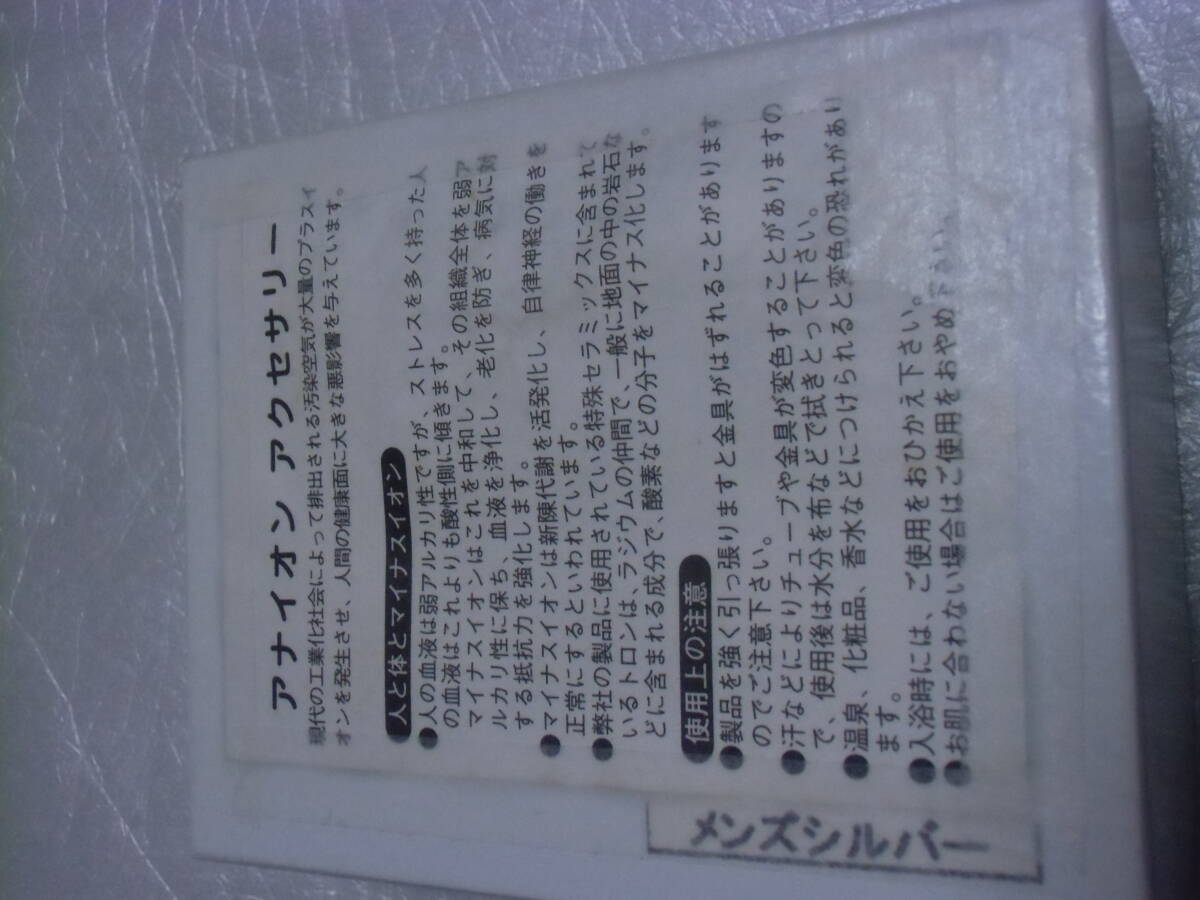 アナイオン アクセサリー
現代の工業化社会によって排出される汚染空気が大量のプラスイ
オンを発生させ、人間の健康面に大きな悪影響を与えています。
人と体とマイナスイオン
●人の血液は弱アルカリ性ですが、ストレスを多く持った人
の血液はこれよりも酸性側に傾きます。
マイナスイオンはこれを中和して、その組織全体を弱ア
ルカリ性に保ち、血液を浄化し、老化を防ぎ、病気に対
する抵抗力を強化します。
●マイナスイオンは新陳代謝を活発化し、自律神経の働きを
正常にするといわれています。
●弊社の製品に使用されている特殊セラミックスに含まれて
いるトロンは、ラジウムの仲間で、一般に地面の中の岩石な
どに含まれる成分で、酸素などの分子をマイナス化します。
使用上の注意
●製品を強く引っ張りますと金具がはずれることがあります
のでご注意下さい。
●汗などによりチューブや金具が変色することがありますの
で、使用後は水分を布などで拭きとって下さい。
●温泉、化粧品、香水などにつけられると変色の恐れがあり
ます。
●入浴時には、ご使用をおひかえ下さい。
●お肌に合わない場合はご使用をおやめ下さい。
メンズシルバー